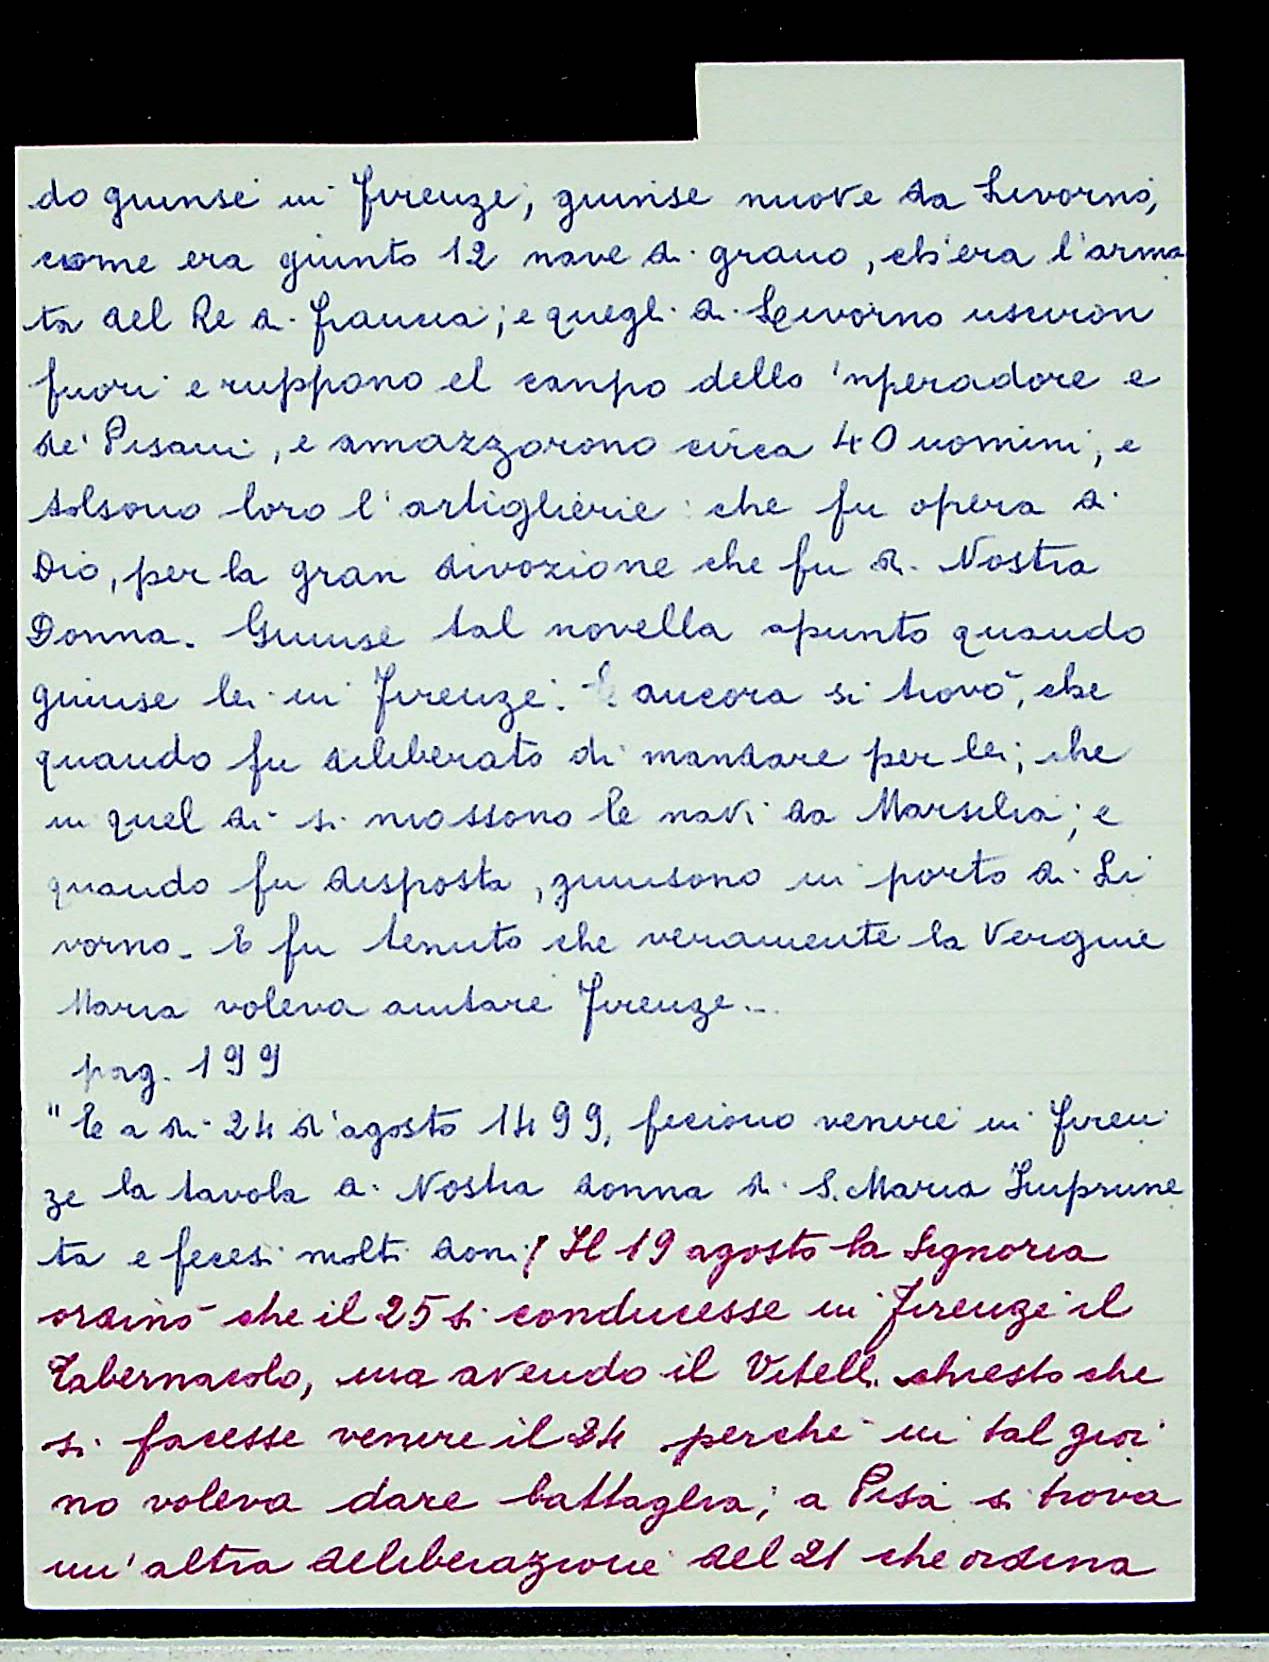 do giunse in Firenze, giunse nuove da Livorno,
come era giunto 12 nave di grano, ch'era l'arma
ta del Re di Francia; e quegli di Livorno usciron
fuori e ruppono el canpo dello 'nperadore e
de' Pisani, e amazzorono circa 40 uomini, e
tolsono loro l'artiglierie: che fu opera di
Dio, per la gran divozione che fu di Nostra
Donna. Giunse tal novella apunto quando
giunse lei in Firenze. E ancora si trovò, che
quando fu diliberato di mandare per lei, che
in quel dì si mossono le navi da Marsilia; e
quando fu disposta, giunsono in porto di Li
vorno. E fu tenuto che veramente la Vergine
Maria voleva aiutare Firenze...
pag. 199
"E a dì 24 d'agosto 1499, feciono venire in Firen
ze la tavola di Nostra donna di S. Maria Imprune
ta e fecesi molti doni / Il 19 agosto la Signoria
ordinò che il 25 si conducesse in Firenze il
Tabernacolo, ma avendo il Vitelli chiesto che
si facesse venire il 24 perchè in tal gior
no voleva dare battaglia; a Pisa si trova
un'altra deliberazione del 21 che ordina